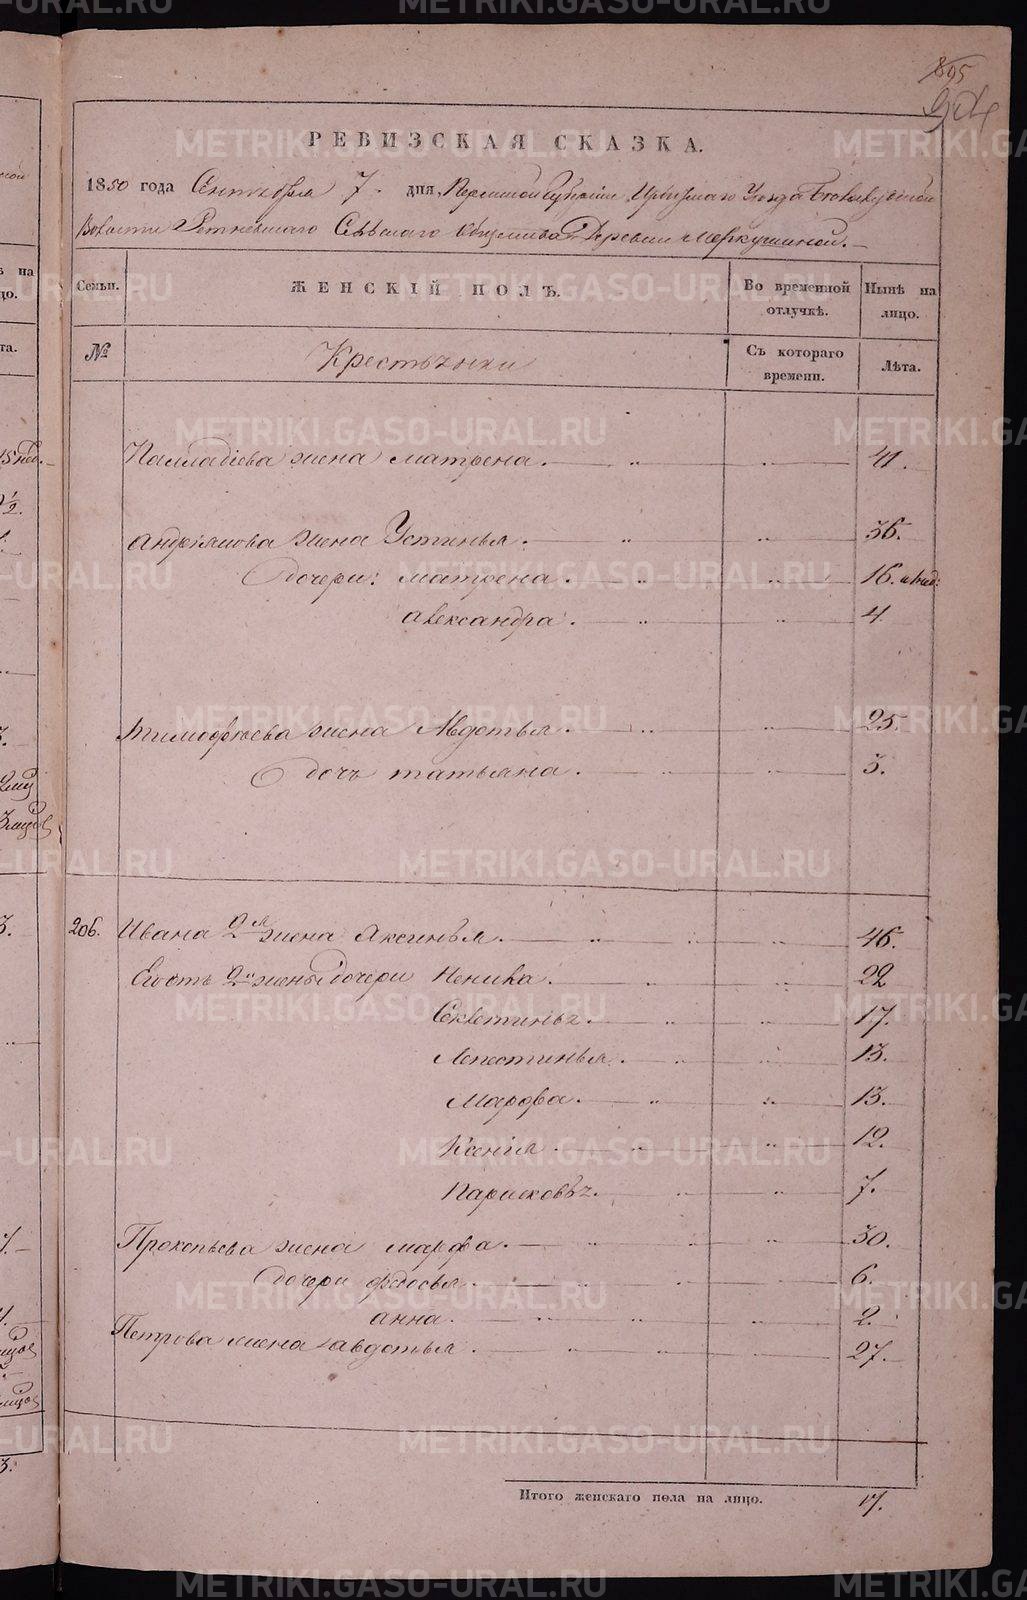 895
РЕВИЗСКАЯ СКАЗКА.
1850 года Сентября 7. дня, Пермской Губернiи, Ирбитскаго Уезда
Волости Ретневскаго Сельскаго Общества Деревни Меркушиной.
Семьи. ЖЕНСКIЙ ПОЛЪ. Во временной отлучкѣ. Нынѣ на лицо.
№ Крестьянки Съ котораго времени. Лѣта.
Палладiева жена матрена. 41.
Андреянова жена Устинья. 36.
дочери: матрена. 16.
александра. 4
Тимофѣева жена Авдотья. 25.
дочь татьяна. 3.
206. Ивана 2я жена Аксинья. 46.
Его отъ 2й жены дочери Ненила. 22
17.
13.
Марфа. 13.
Ксенiя 12.
Парасковья. 7.
Прокопьева жена марфа. 30.
дочери федосья. 6.
анна. 2.
Петрова жена авдотья. 27.
Итого женскаго пола на лицо. 17.
METRIKI.GASO-URAL.RU